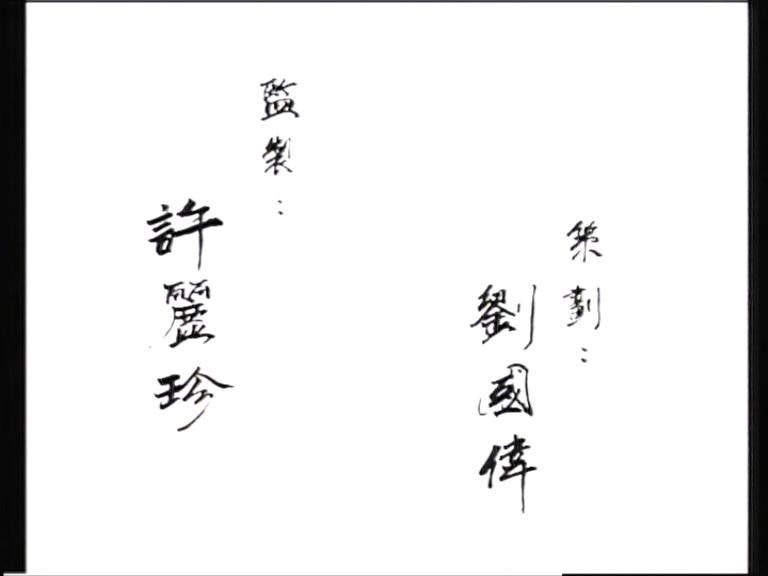 策劃：
劉國偉
監製：
許麗珍